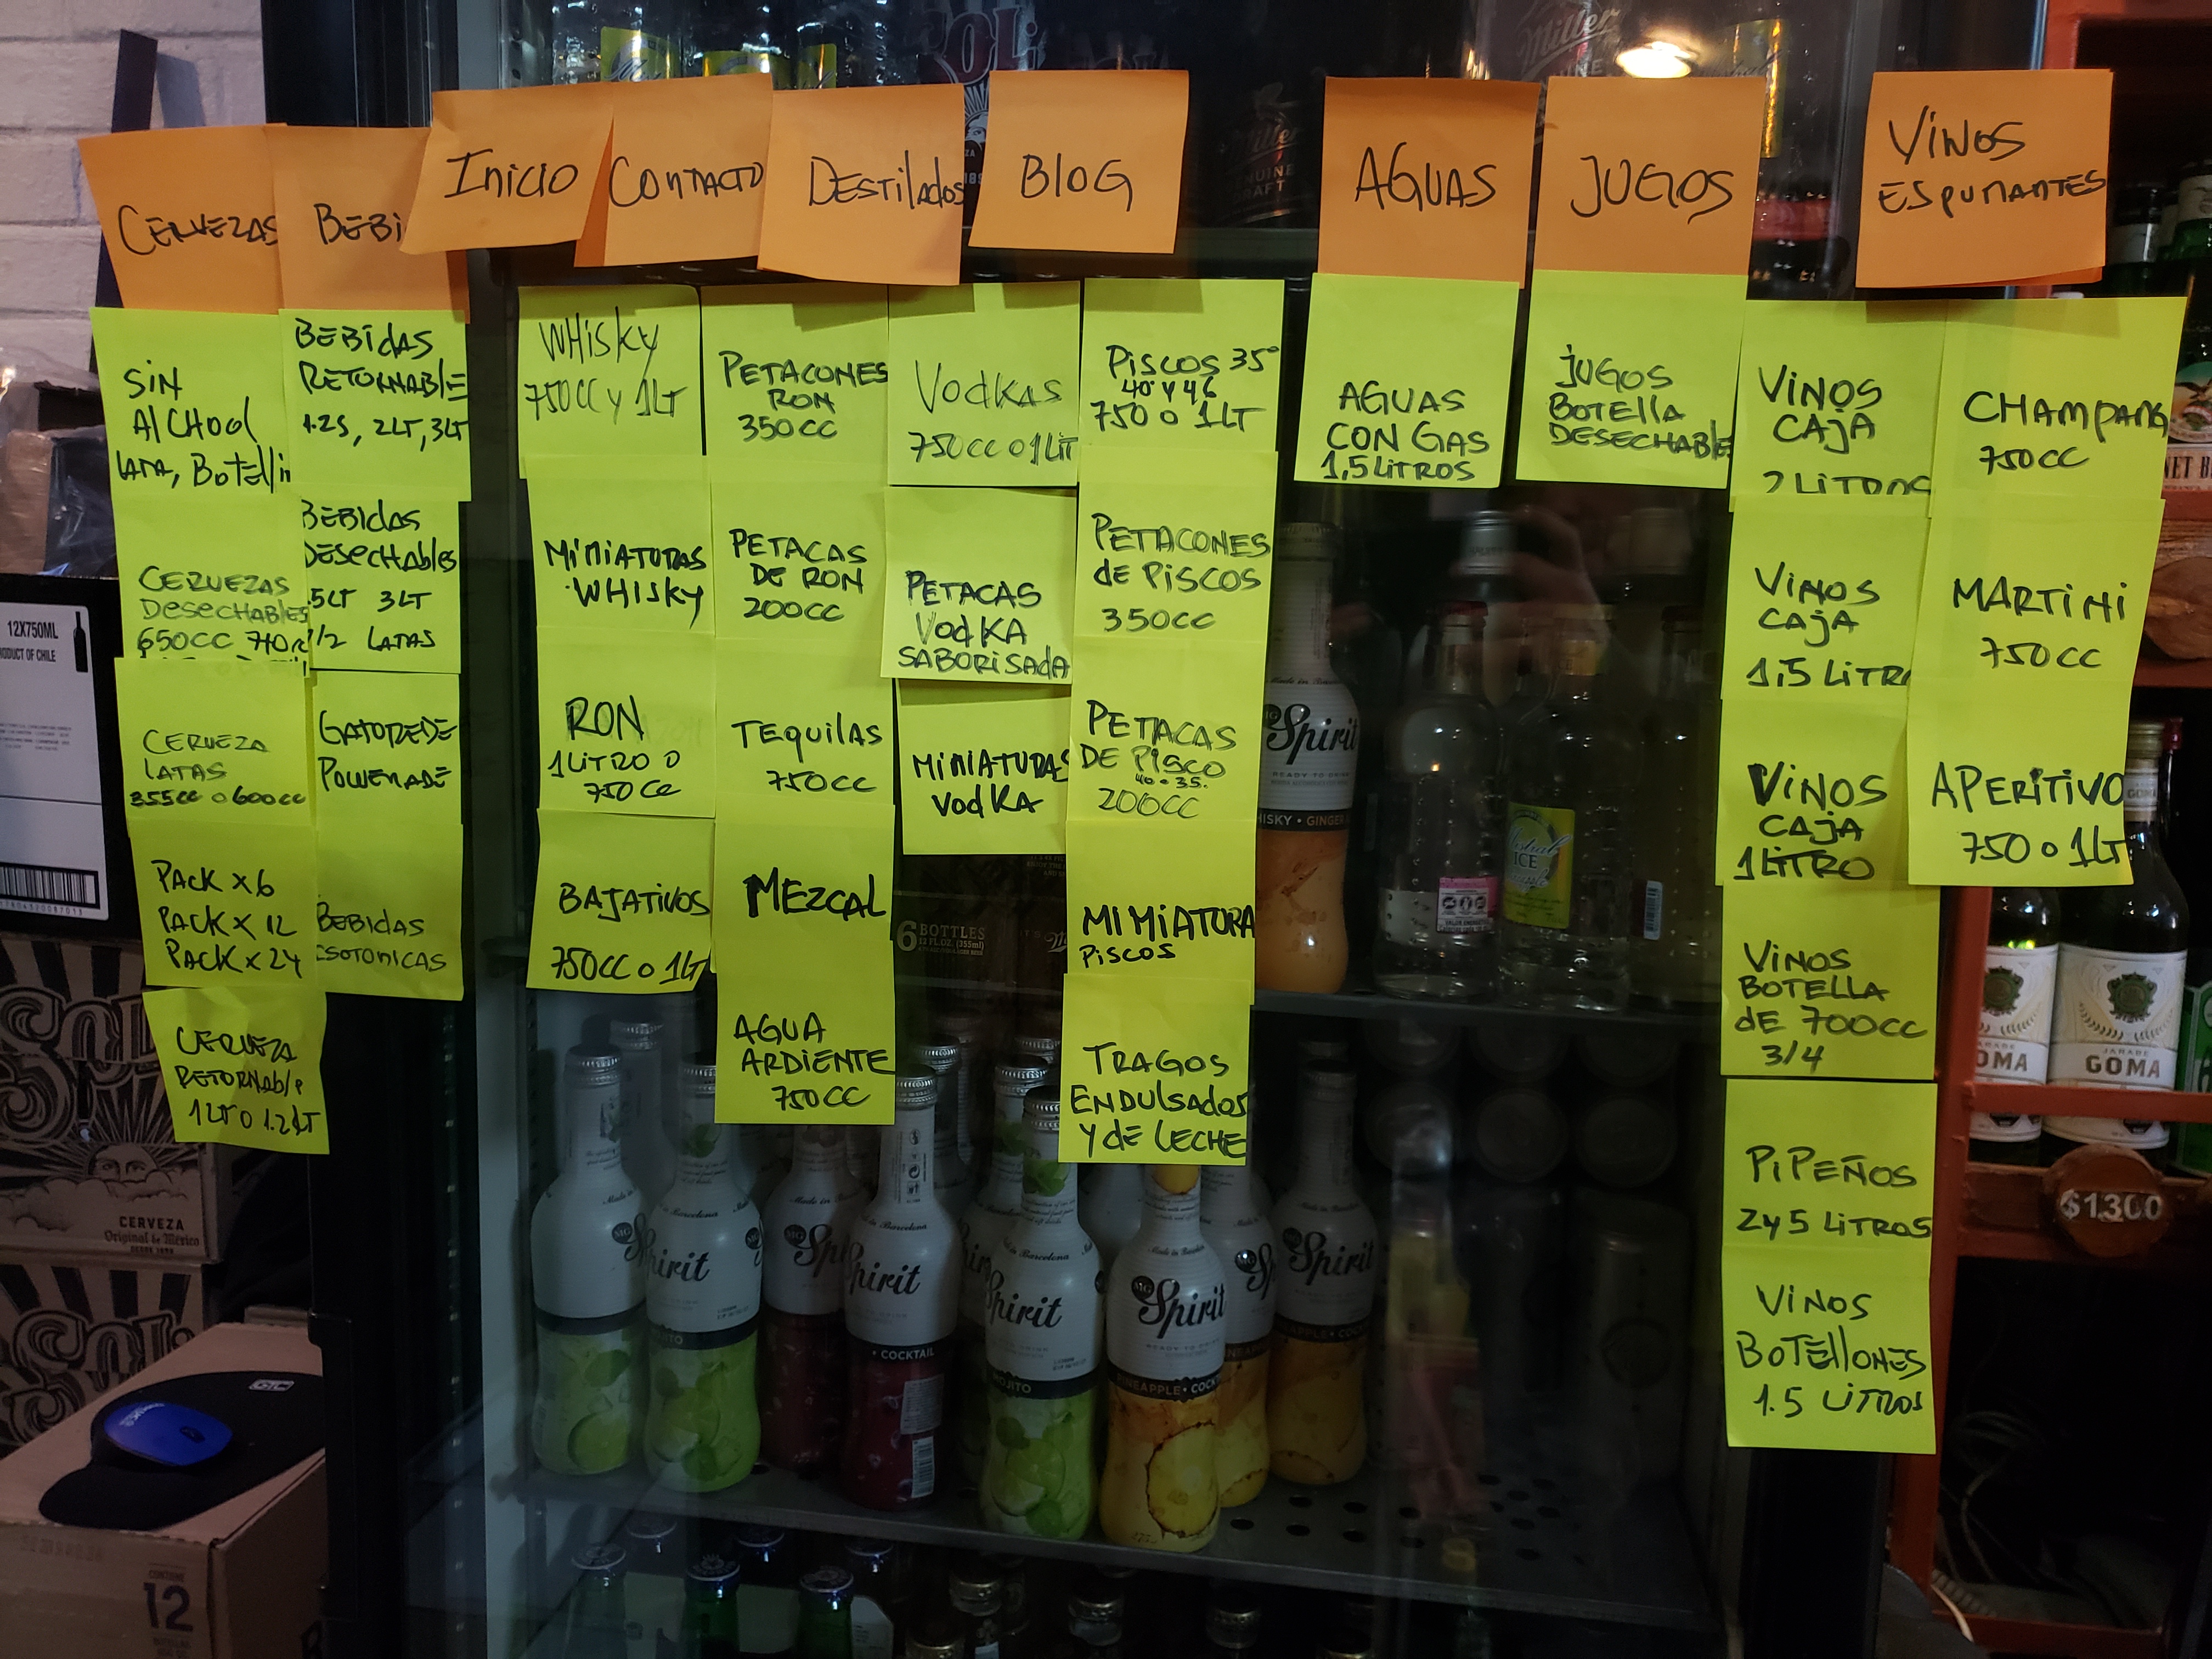 CERVEZAS
BEBI
INICIO
CONTACTO
DESTILADOS
BLOG
AGUAS
JUGOS
VINOS
ESPUMANTES
SIN
AlCHOOl
LATA, BOTEllIN
CERVEZAS
DESECHABLES
650CC 710CC
CERVEZA
LATAS
355CC o 600CC
PACK X 6
PACK X 12
PACK X 24
CERVEZA
RETORNABlE
1LT o 1.2LT
BEBIDAS
RETORNABLE
1.25, 2LT, 3LT
BEBIDAS
DESECHABLES
.5LT 3LT
1/2 LATAS
GATOREDE
POWERADE
BEBIDAS
ESOTONICAS
WHISKY
750CC Y 1LT
MINIATURAS
WHISKY
RON
1 LITRO O
750 CC
BAJATIVOS
750CC o 1LT
PETACONES
RON
350CC
PETACAS
DE RON
200CC
TEQUILAS
750CC
MEZCAL
AGUA
ARDIENTE
750CC
VODKAS
750CC o 1LIT
PETACAS
VODKA
SABORISADA
MINIATURAS
VODKA
PISCOS 35°
40° Y 46
750 O 1LT
PETACONES
DE PISCOS
350CC
PETACAS
DE PISCO
40 o 35.
200CC
MINIATURA
PISCOS
TRAGOS
ENDULSADOS
Y DE LECHE
AGUAS
CON GAS
1,5 LITROS
JUGOS
BOTELLA
DESECHABLE
VINOS
CAJA
2 LITROS
VINOS
CAJA
1,5 LITR
VINOS
CAJA
1 LITRO
VINOS
BOTELLA
DE 700CC
3/4
PIPEÑOS
2 y 5 LITROS
VINOS
BOTELLONES
1.5 LITROS
CHAMPANG
750CC
MARTINI
750CC
APERITIVO
750 o 1LT
12X750ML
PRODUCT OF CHILE
SOL
CERVEZA
Original de México
12
Miller
Spirit
Made in Barcelona
READY TO DRINK
WHISKY • GINGER
MOJITO
• COCKTAIL
PINEAPPLE • COCKT
6 BOTTLES
12 FL.OZ. (355ml)
Mistral
ICE
JARABE
GOMA
$1.300